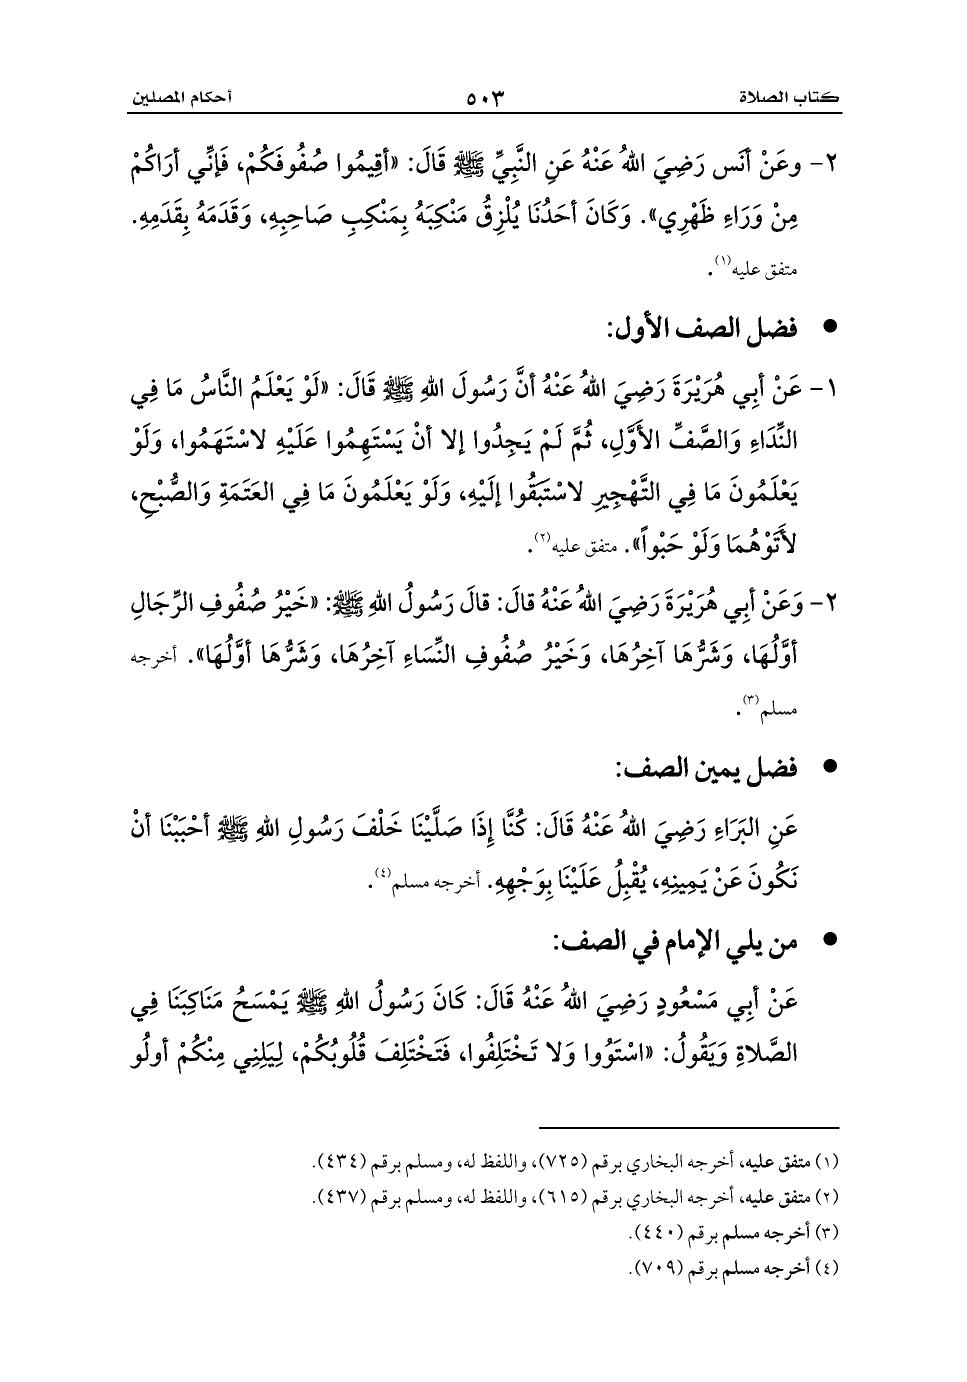 كتاب الصلاة ٥٠٣ أحكام المصلين
٢- وعَنْ أنَس رَضِيَ اللهُ عَنْهُ عَنِ النَّبِيِّ ﷺ قَالَ: «أقِيمُوا صُفُوفَكُمْ، فَإنِّي أرَاكُمْ
مِنْ وَرَاءِ ظَهْرِي». وَكَانَ أحَدُنَا يُلْزِقُ مَنْكِبَهُ بِمَنْكِبِ صَاحِبِهِ، وَقَدَمَهُ بِقَدَمِهِ.
متفق عليه(١).
● فضل الصف الأول:
١- عَنْ أبِي هُرَيْرَةَ رَضِيَ اللهُ عَنْهُ أنَّ رَسُولَ اللهِ ﷺ قَالَ: «لَوْ يَعْلَمُ النَّاسُ مَا فِي
النِّدَاءِ وَالصَّفِّ الأَوَّلِ، ثُمَّ لَمْ يَجِدُوا إلا أنْ يَسْتَهِمُوا عَلَيْهِ لاسْتَهَمُوا، وَلَوْ
يَعْلَمُونَ مَا فِي التَّهْجِيرِ لاسْتَبَقُوا إلَيْهِ، وَلَوْ يَعْلَمُونَ مَا فِي العَتَمَةِ وَالصُّبْحِ،
لأَتَوْهُمَا وَلَوْ حَبْواً». متفق عليه(٢).
٢- وَعَنْ أبِي هُرَيْرَةَ رَضِيَ اللهُ عَنْهُ قالَ: قالَ رَسُولُ اللهِ ﷺ: «خَيْرُ صُفُوفِ الرِّجَالِ
أوَّلُهَا، وَشَرُّهَا آخِرُهَا، وَخَيْرُ صُفُوفِ النِّسَاءِ آخِرُهَا، وَشَرُّهَا أوَّلُهَا». أخرجه
مسلم(٣).
● فضل يمين الصف:
عَنِ البَرَاءِ رَضِيَ اللهُ عَنْهُ قَالَ: كُنَّا إِذَا صَلَّيْنَا خَلْفَ رَسُولِ اللهِ ﷺ أحْبَبْنَا أنْ
نَكُونَ عَنْ يَمِينِهِ، يُقْبِلُ عَلَيْنَا بِوَجْهِهِ. أخرجه مسلم(٤).
● من يلي الإمام في الصف:
عَنْ أبِي مَسْعُودٍ رَضِيَ اللهُ عَنْهُ قَالَ: كَانَ رَسُولُ اللهِ ﷺ يَمْسَحُ مَنَاكِبَنَا فِي
الصَّلاةِ وَيَقُولُ: «اسْتَوُوا وَلا تَخْتَلِفُوا، فَتَخْتَلِفَ قُلُوبُكُمْ، لِيَلِنِي مِنْكُمْ أولُو
(١) متفق عليه، أخرجه البخاري برقم (٧٢٥)، واللفظ له، ومسلم برقم (٤٣٤).
(٢) متفق عليه، أخرجه البخاري برقم (٦١٥)، واللفظ له، ومسلم برقم (٤٣٧).
(٣) أخرجه مسلم برقم (٤٤٠).
(٤) أخرجه مسلم برقم (٧٠٩).